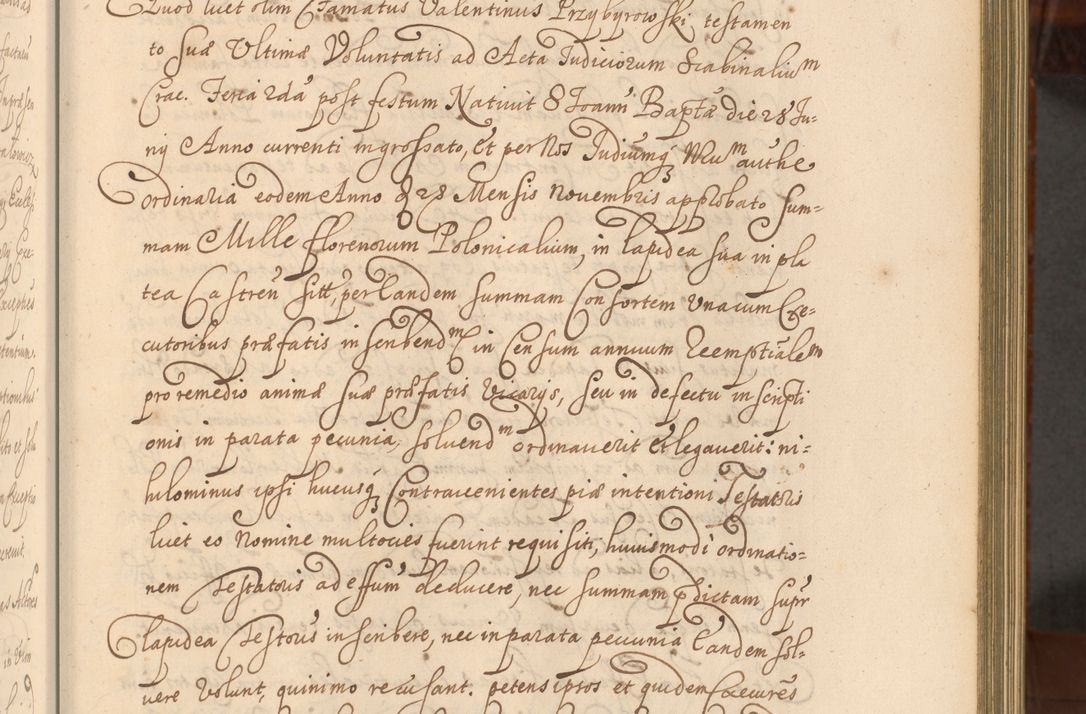 Quod licet olim Famatus Valentinus Przybyrowski testamen
to suæ Ultimæ Voluntatis ad Acta Iudiciorum Scabinalium
Crac. Feria 2dâ post festum Nativit S Joannˢ Baptæ die 28 Ju-
nij Anno currenti ingrossato, Et per Nos Iudiumq3 Nrum authe
Ordinaria eodem Anno 28 Mensis Novembris approbato sum-
mam Mille florenorum Polonicalium, in lapidea sua in pla
tea Castren̄ sitt, per Eandem summam Consortem Unacum Exe-
cutoribus præfatis inscribendm in Censum annuum Reemptialem
pro remedio animæ suæ præfatis Vicarijs, seu in defectu inscripti
onis in parata pecunia, solvendm ordinaverit Et legaverit: ni-
hilominus ipsi hucusq3 Contravenientes piæ intentioni Testatoris
licet eo Nomine multoties fuerint requisiti, huiusmodi ordinatio-
nem Testatoris ad effum deducere, nec summam pdictam supr
lapidea Testoris inscribere, nec in parata pecunia Eandem sol-
vere Volunt, quinimo recusant. petens iptos et quidem Execures